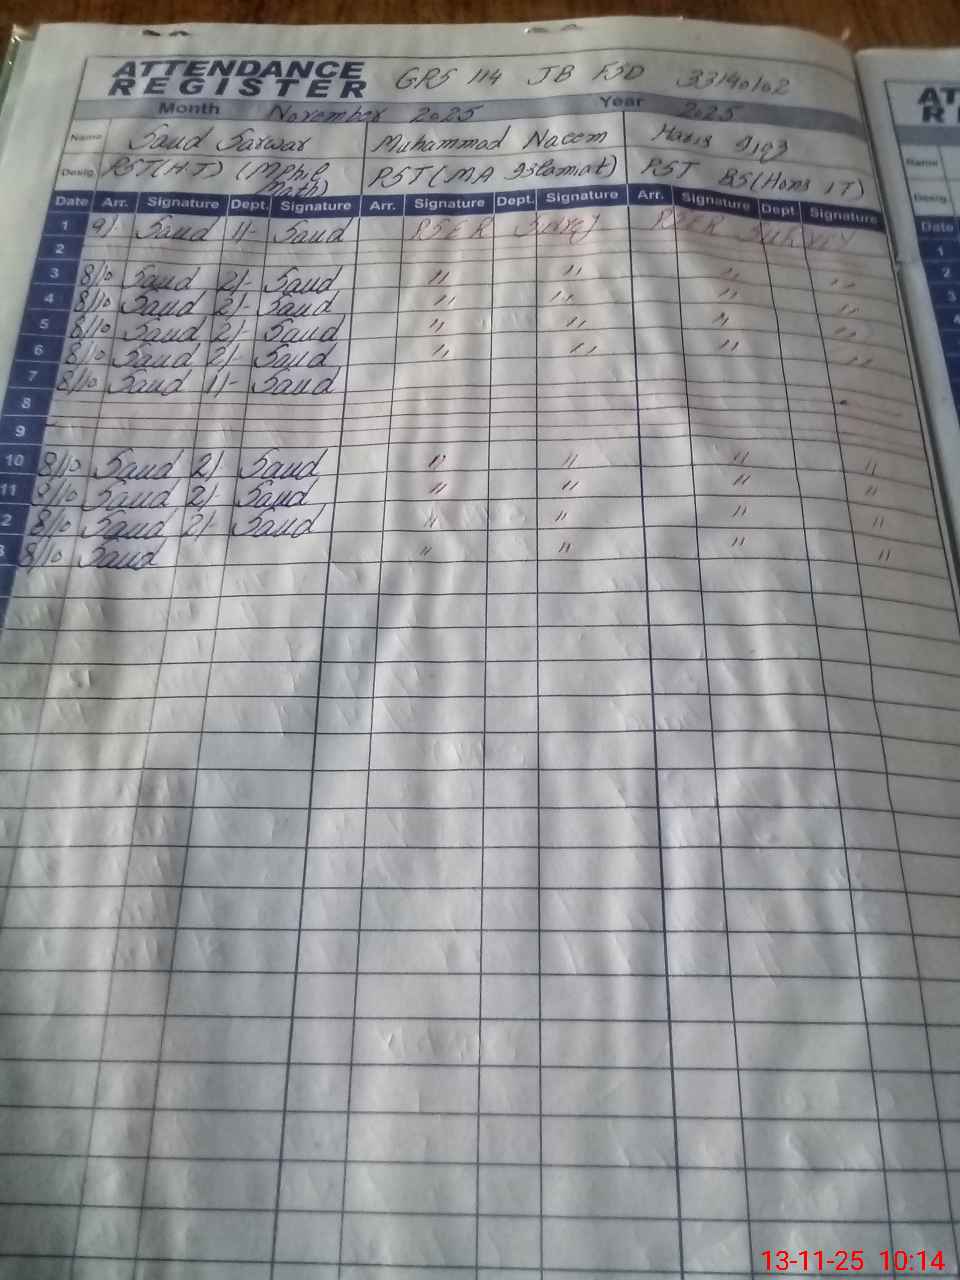 ATTENDANCE REGISTER GPS 114 JB FSD 33140102
Month November 2025 Year 2025
Name Saud Sarwar Muhammad Naeem Haris
Desig. PST(H.T) (Mphil Math) PST(MA Islamiat) PST BS(Hons IT)
Date Arr. Signature Dept. Signature Arr. Signature Dept. Signature Arr. Signature Dept. Signature
1 9/- Saud 1/- Saud PSER Survey PSER SURVEY
2
3 8/10 Saud 2/- Saud " " " "
4 8/10 Saud 2/- Saud " " " "
5 8/10 Saud 2/- Saud " " " "
6 8/10 Saud 2/- Saud " " " "
7 8/10 Saud 1/- Saud
8
9
10 8/10 Saud 2/- Saud " " " "
11 8/10 Saud 2/- Saud " " " "
2 8/10 Saud 2/- Saud " " " "
3 8/10 Saud " " " "
AT
R
Name
Desig.
Date
1
2
3
4
13-11-25 10:14